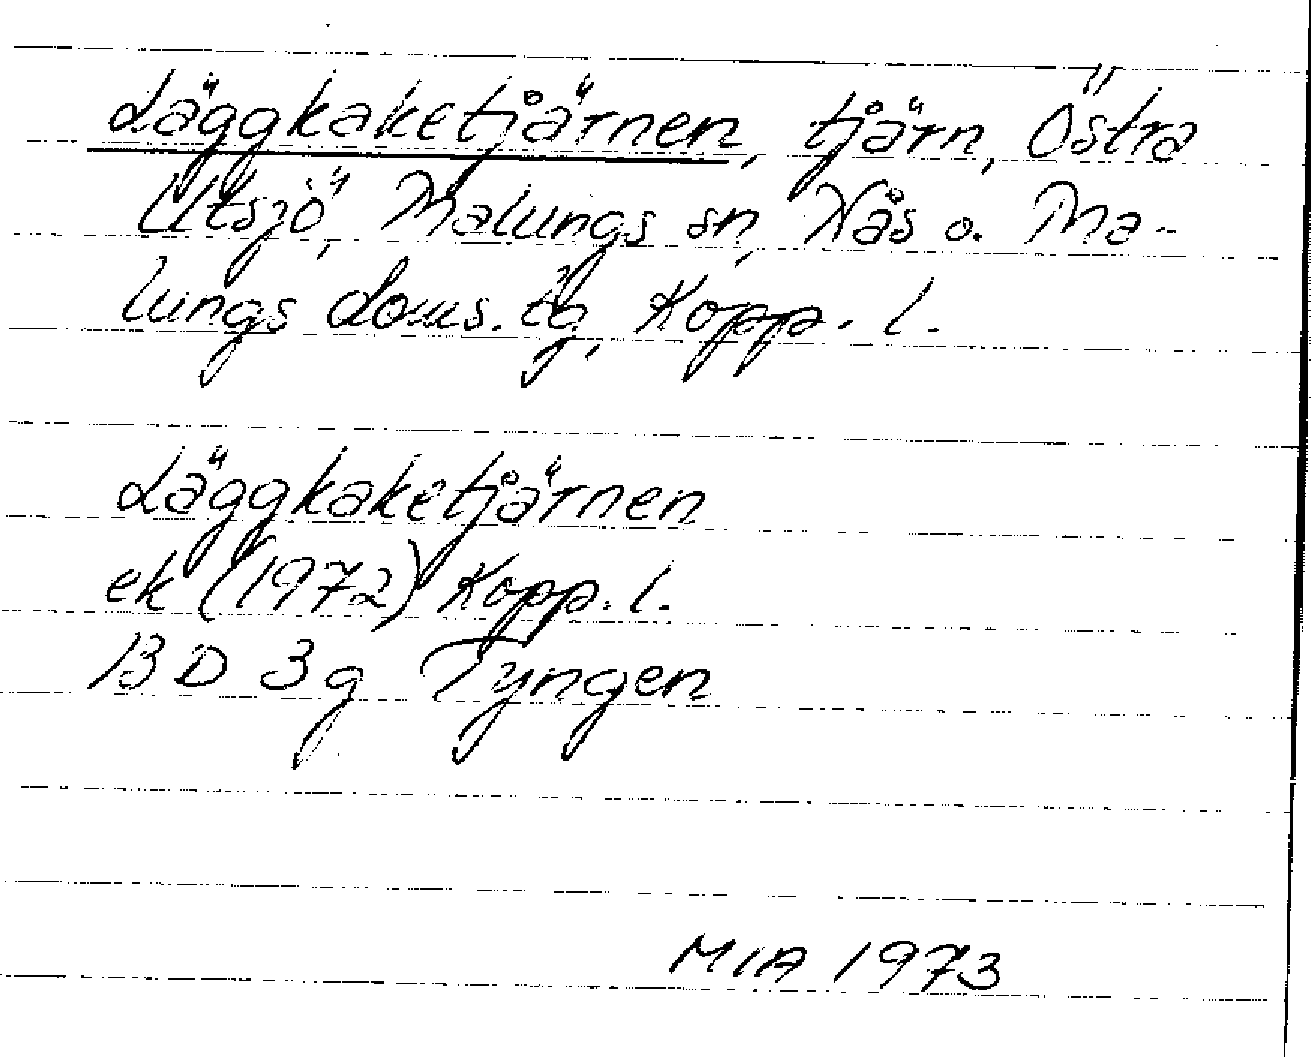 Läggkaketjärnen, tjärn, Östra
Utsjö, Malungs sn, Nås o. Ma-
lungs doms. tg, Kopp. l.
Läggkaketjärnen
ek (1972) Kopp. l.
13 D 3g Tyngen
MIA 1973